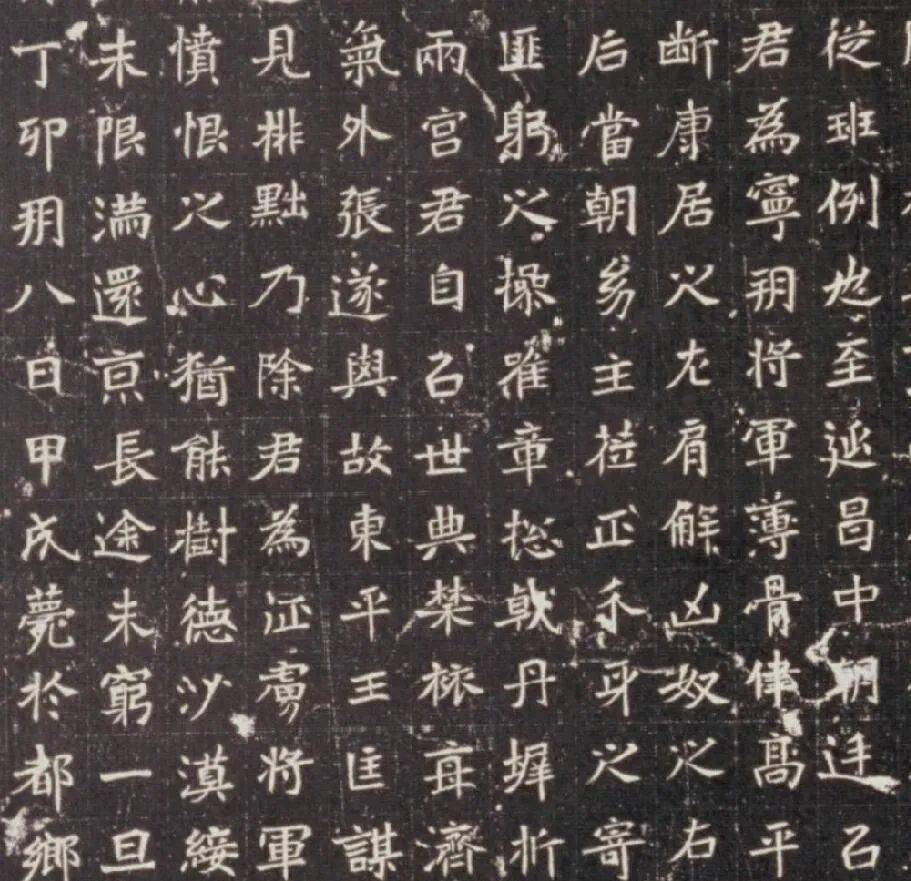 從班例也至延昌中朝廷以
君為寧朔将軍薄骨律高平
断康居之左肩解凶奴之右
后當朝幼主莅正身之寄
匪躬之操章揔戟丹墀折
兩宮君自以世典禁旅濟
氣外張遂與故東平王匡謀
見排黜乃除君為征虜将軍
憤恨之心猶能樹德沙漠綏
未限滿還京長途未窮一旦
丁卯朔八日甲戌薨於都鄉